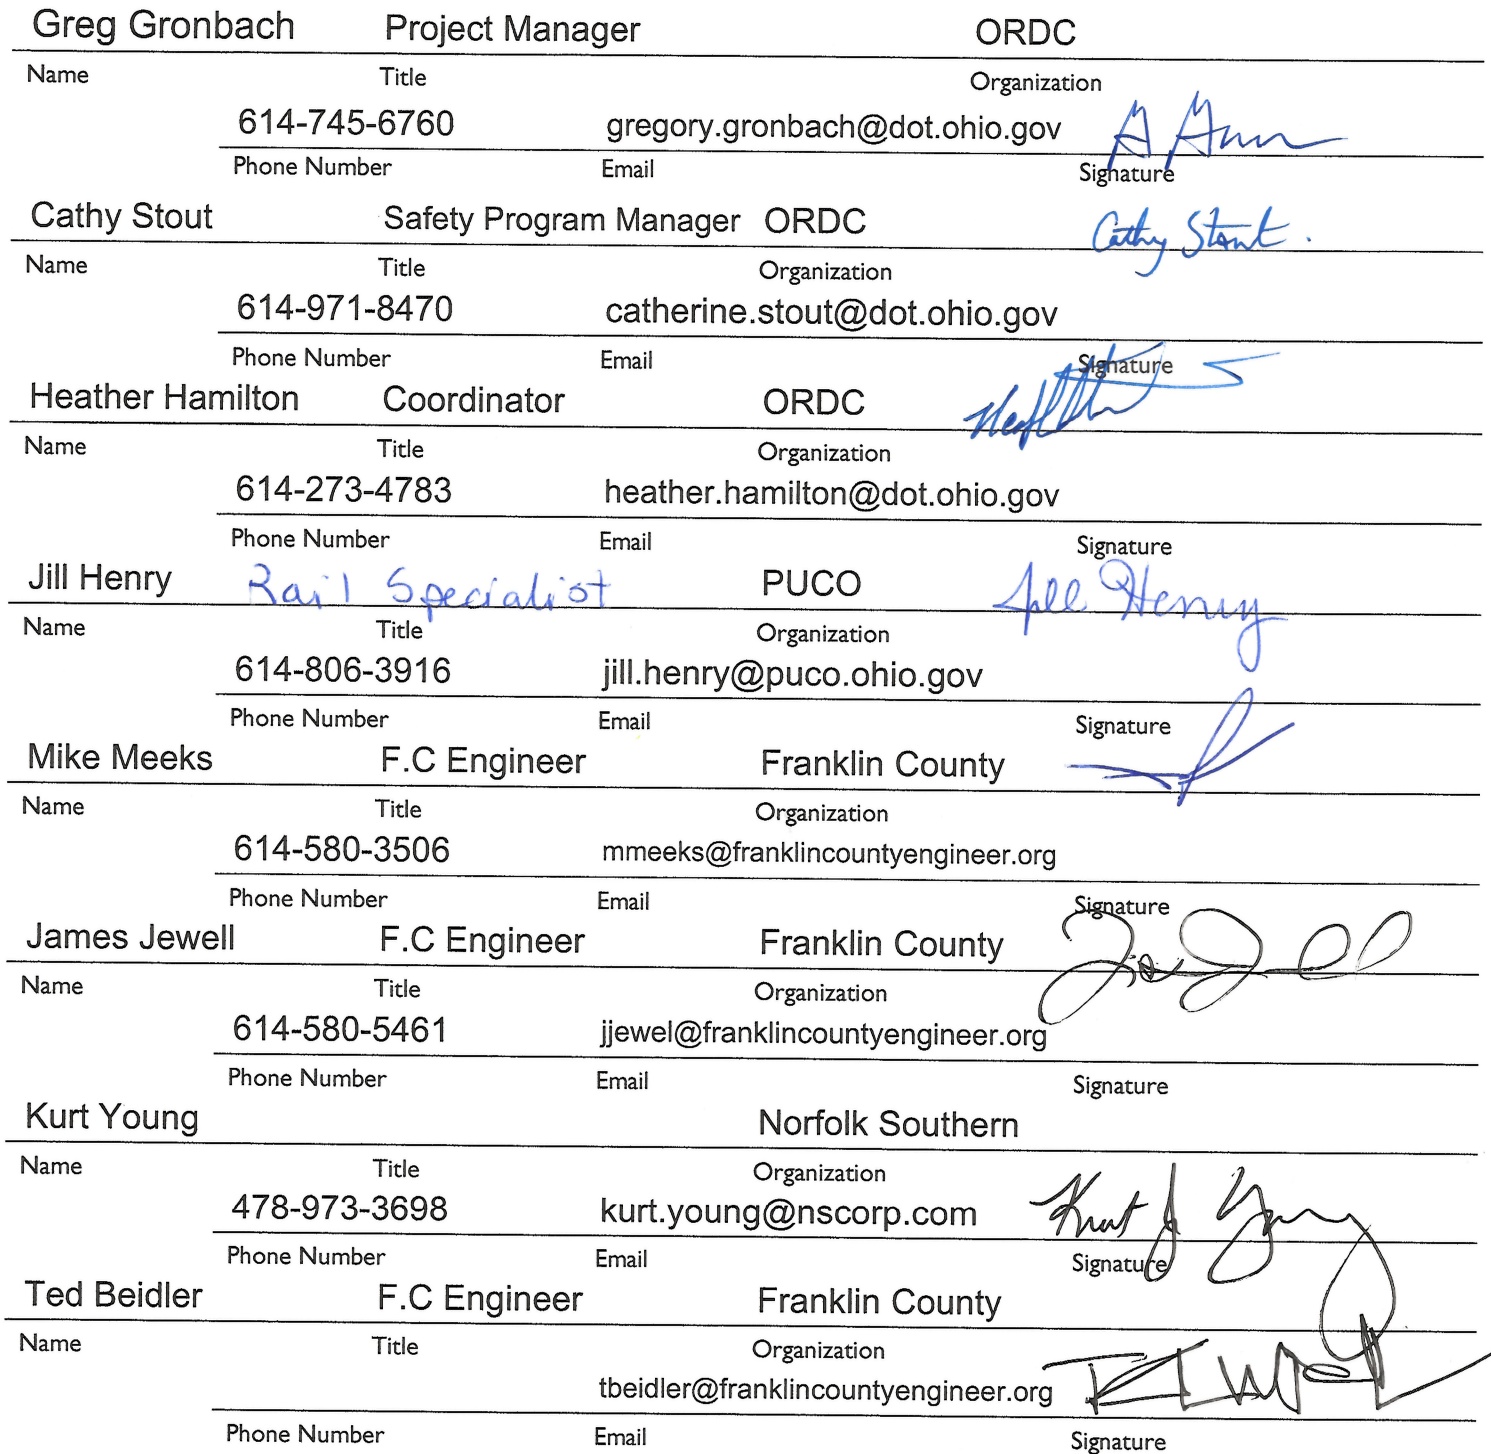 Greg Gronbach Project Manager ORDC
Name Title Organization
614-745-6760 gregory.gronbach@dot.ohio.gov
Phone Number Email Signature
Cathy Stout Safety Program Manager ORDC Cathy Stout.
Name Title Organization
614-971-8470 catherine.stout@dot.ohio.gov
Phone Number Email Signature
Heather Hamilton Coordinator ORDC
Name Title Organization
614-273-4783 heather.hamilton@dot.ohio.gov
Phone Number Email Signature
Jill Henry Rail Specialist PUCO Jill Henry
Name Title Organization
614-806-3916 jill.henry@puco.ohio.gov
Phone Number Email Signature
Mike Meeks F.C Engineer Franklin County
Name Title Organization
614-580-3506 mmeeks@franklincountyengineer.org
Phone Number Email Signature
James Jewell F.C Engineer Franklin County
Name Title Organization
614-580-5461 jjewel@franklincountyengineer.org
Phone Number Email Signature
Kurt Young Norfolk Southern
Name Title Organization
478-973-3698 kurt.young@nscorp.com Kurt J Young
Phone Number Email Signature
Ted Beidler F.C Engineer Franklin County
Name Title Organization
tbeidler@franklincountyengineer.org
Phone Number Email Signature